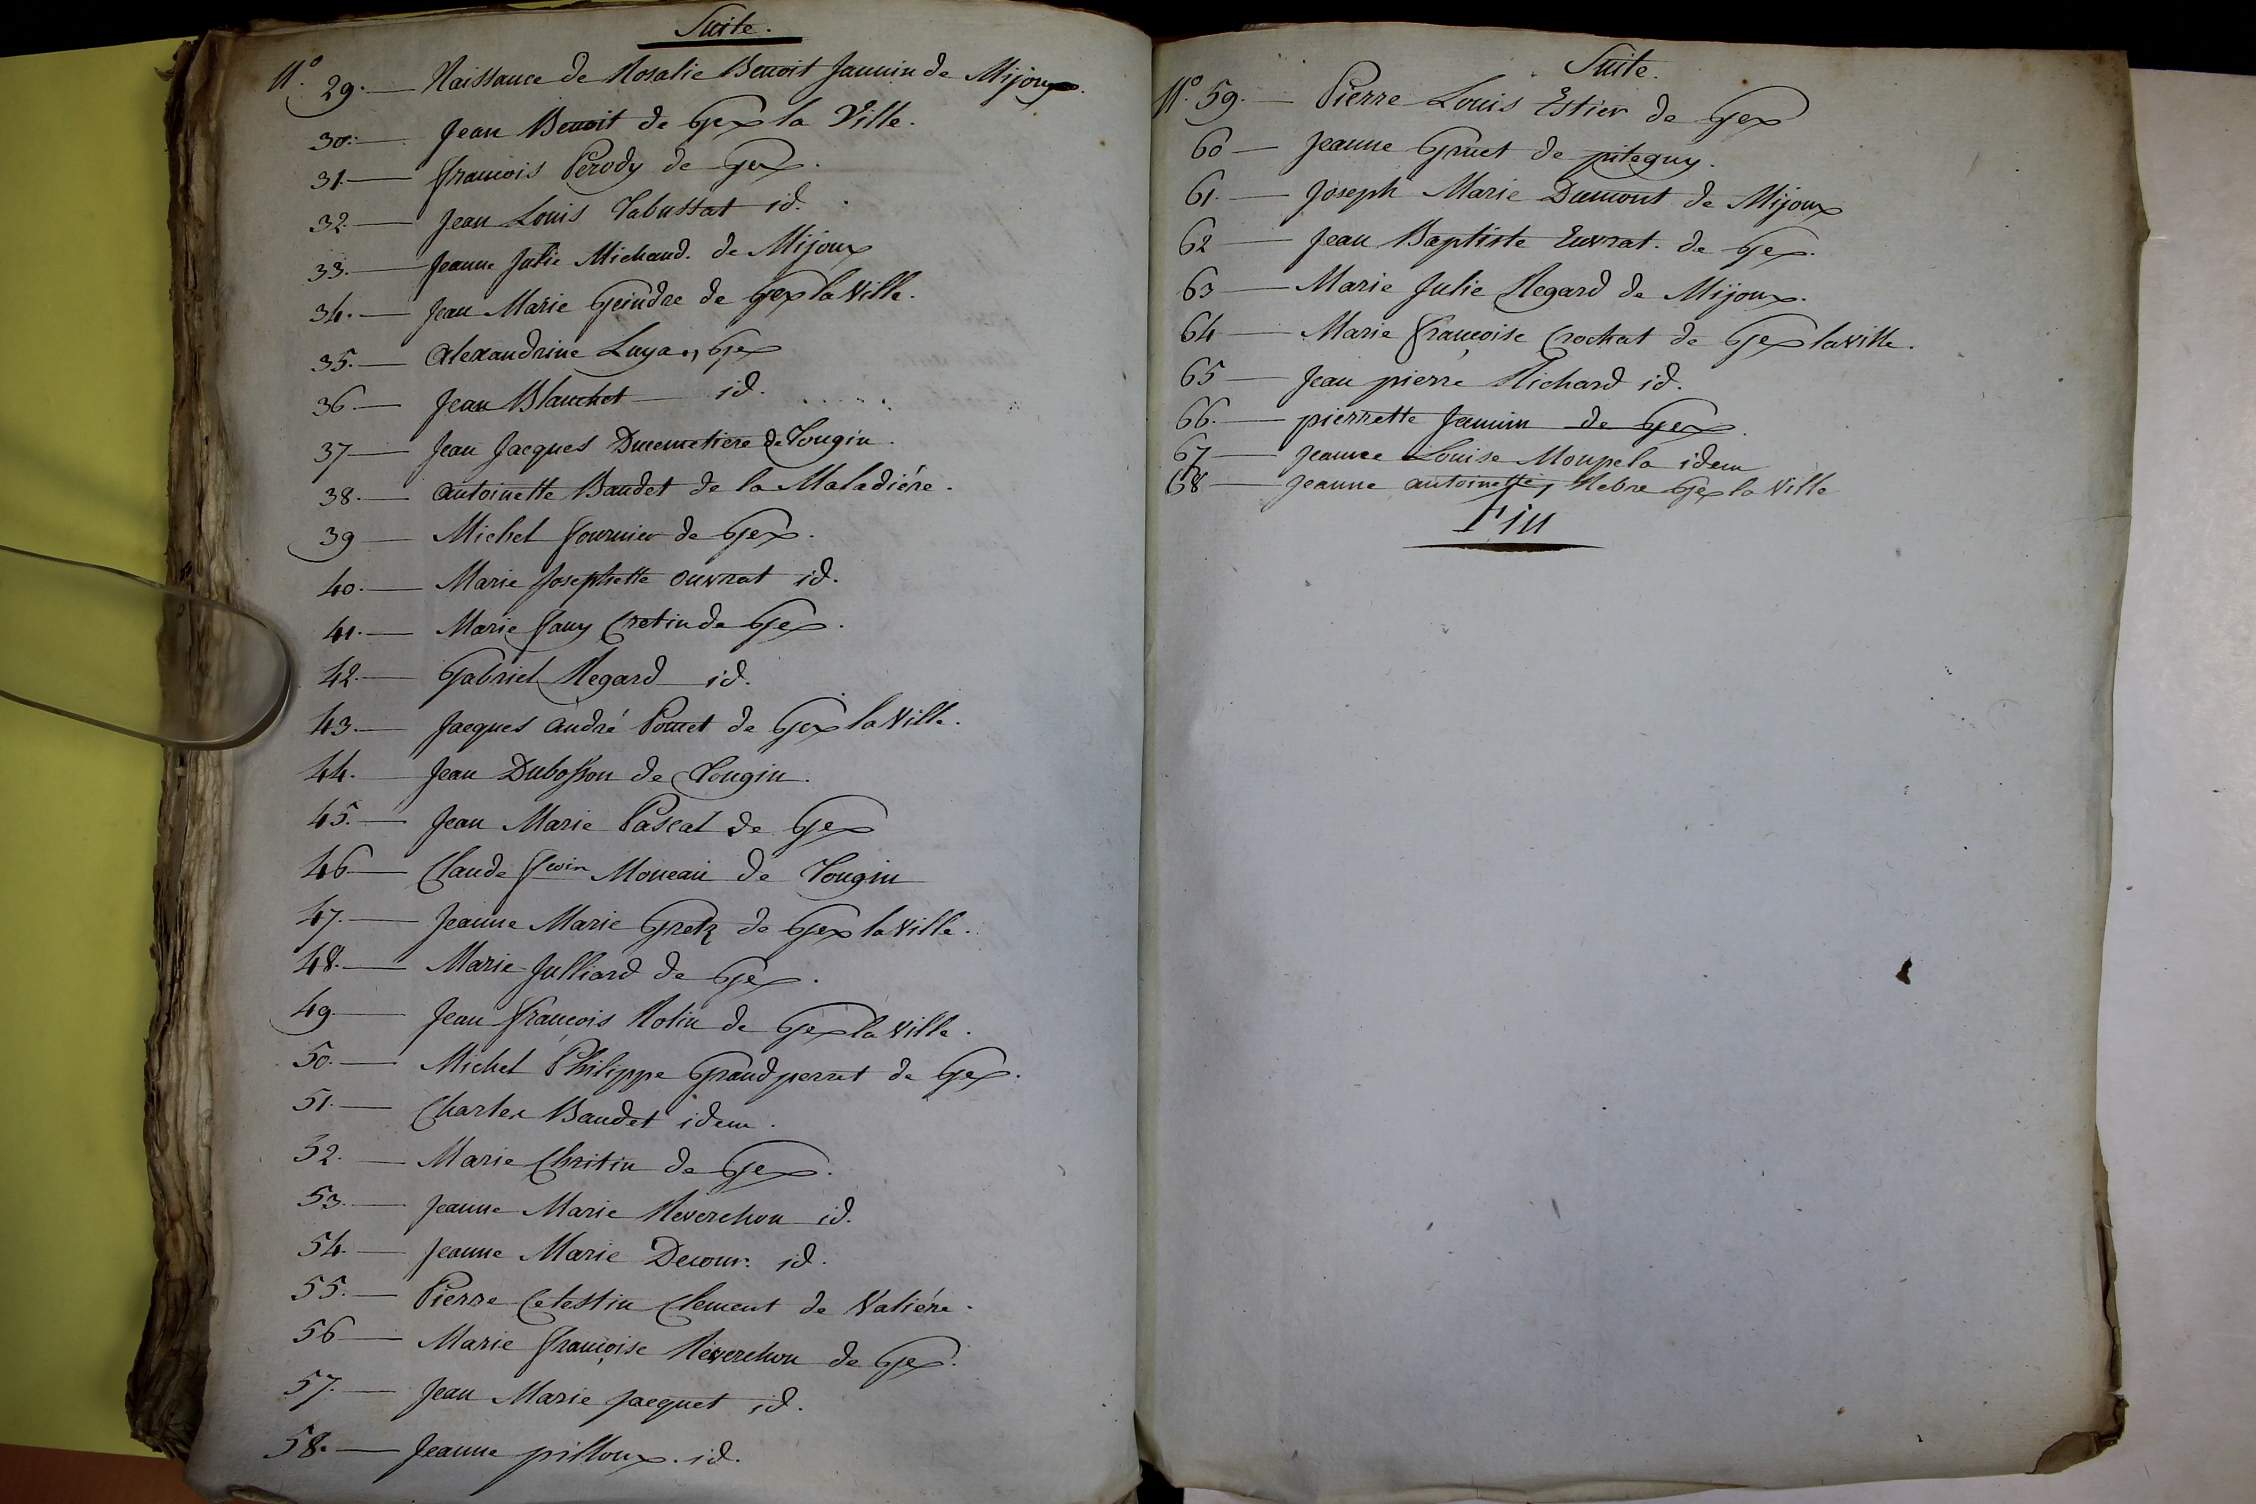 Suite.
N.º 29. — Naissance de Rosalie Benoit Jannin de Mijoux.
30. — Jean Benoit de Gex la Ville.
31. — François Perody de Gex.
32. — Jean Louis Tabussat id.
33. — Jeanne Julie Michaud. de Mijoux
34. — Jean Marie Geindre de Gex la Ville.
35. — Alexandrine Gex
36. — Jean Blanchet — id.
37 — Jean Jacques Ducemetiere de Tougin.
38. — antoinette Baudet de la Maladiére.
39 — Michel fournier de Gex.
40. — Marie Josephette ouvrat id.
41. — Marie fany Cretin de Gex.
42. — Gabriel Regard id.
43. — Jacques andré Pomet de Gex la Ville.
44. — Jean Dubosson de Tougin.
45. — Jean Marie Pascal de Gex
46 — Claude fcois Moneau de Tougin
47. — Jeanne Marie Gretz de Gex la Ville.
48. — Marie Julliard de Gex.
49 — Jean françois Rolin de Gex la Ville.
50. — Michel Philippe Grandperret de Gex.
51. — Charles Baudet idem.
52. — Marie Chritin de Gex.
53. — Jeanne Marie Reverchon id.
54. — Jeanne Marie Decour. id.
55. — Pierre Celestin Clement de Valiére.
56 — Marie françoise Reverchon de Gex.
57. — Jean Marie Jacquet id.
58. — Jeanne pilloux. id.
Suite.
N.º 59. — Pierre Louis Estier de Gex
60 — Jeanne Gruet de pitegny.
61. — Joseph Marie Dumont de Mijoux
62 — Jean Baptiste Euvrat. de Gex.
63 — Marie Julie Regard de Mijoux.
64 — Marie françoise Crochat de Gex la Ville.
65 — Jean pierre Richard id.
66. — pierrette Jannin de Gex.
67 — Jeanne Louise Monpela idem
68 — Jeanne antoinette, Rebre Gex la Ville
Fin